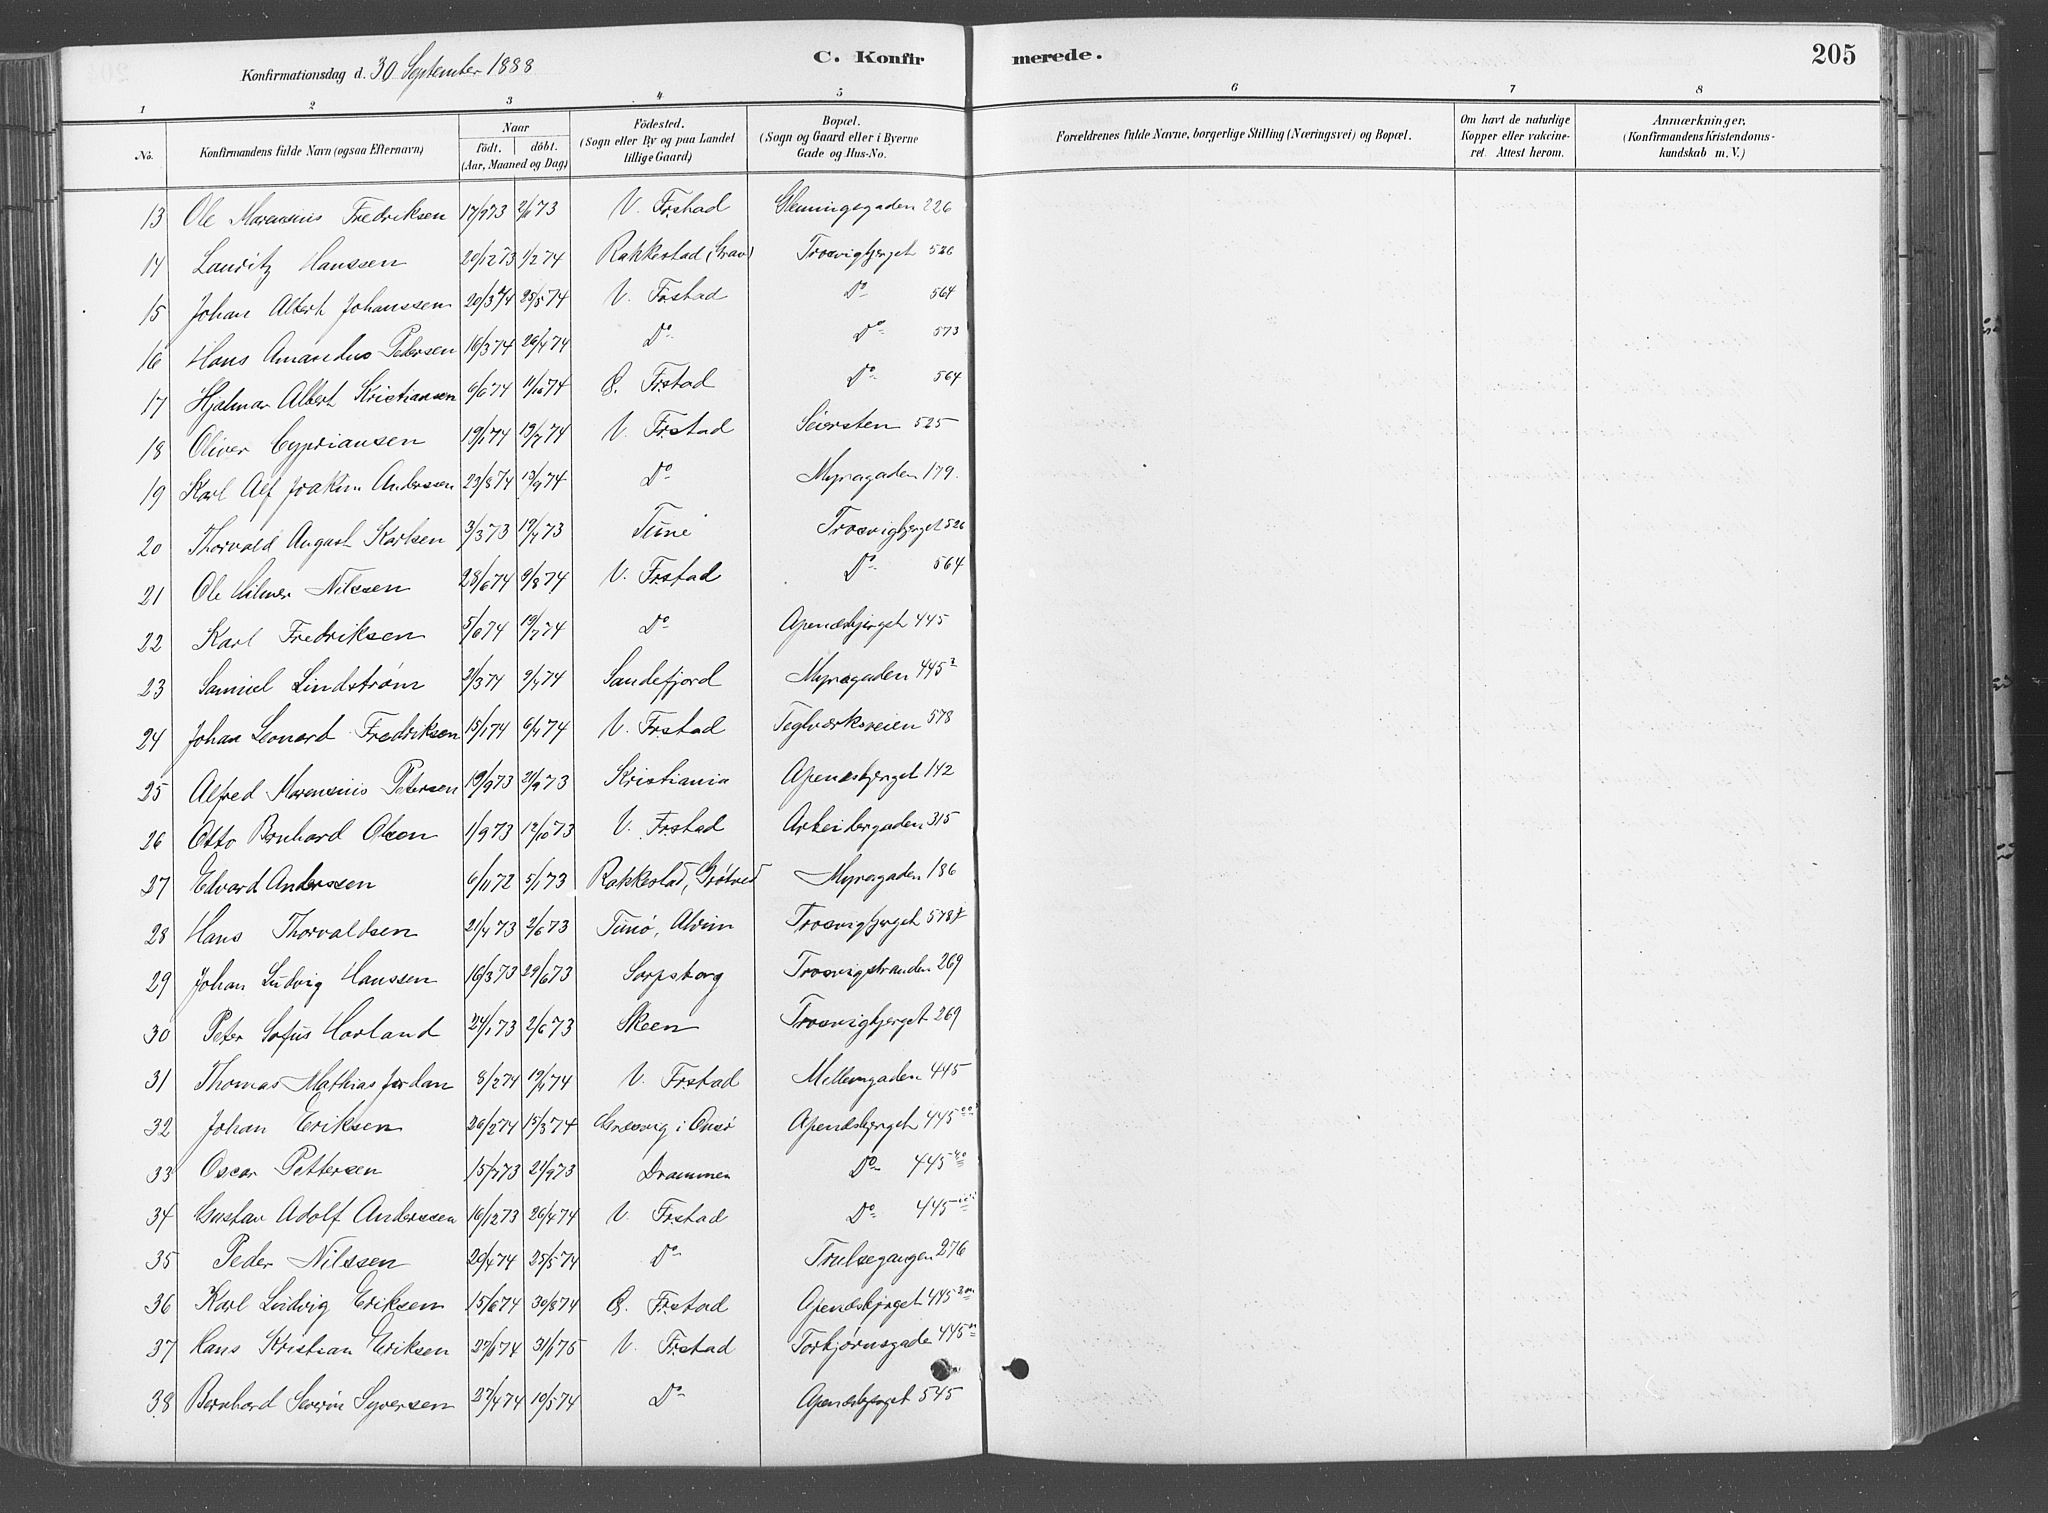 Konfirmationsdag d. 30 September 1888
C. Konfirmerede.
205
1 2 3 4 5 6 7 8
No. Konfirmandens fulde Navn (ogsaa Efternavn) Naar födt. döbt. (Aar, Maaned og Dag) Födested. (Sogn eller By og paa Landet tillige Gaard) Bopæl. (Sogn og Gaard eller i Byerne Gade og Hus-No. Forældrenes fulde Navne, borgerlige Stilling (Næringsvei) og Bopæl. Om havt de naturlige Kopper eller vakcineret. Attest herom. Anmærkninger, (Konfirmandens Kristendomskundskab m. V.)
13 Ole Marensius Fredriksen 17/973 2/ 73 V. Frstad Glemmingegaden 226
14 Lauritz Hanssen 20/1273 1/274 Rakkestad (Grav) Trosvigbjerget 526
15 Johan Albert Johanssen 20/374 25/574 V. Frstad Do 564
16 Hans Amandus Pedersen 16/374 26/474 Do Do 573
17 Hjalmar Albert Kristiansen 6/674 11/1074 Ø. Frstad Do 564
18 Oliver Cypriansen 19/174 19/774 V. Frstad Seiersten 525
19 Karl Alf Joakim Anderssen 23/874 13/974 Do Myragaden 179.
20 Thorvald August Karlsen 3/373 19/473 Tune Trosvigbjerget 526
21 Ole Hilmer Nilssen 28/674 9/874 V. Frstad Do 564
22 Karl Fredriksen 5/674 19/774 Do Apenæsbjerget 445
23 Samuel Lindstrøm 21/374 9/474 Sandefjord Myragaden 445
24 Johan Leonard Fredriksen 15/174 6/474 V. Frstad Teglværksveien 578
25 Alfred Marensius Petersen 19/973 21/973 Kristiania Apenæsbjerget 142
26 Otto Bernhard Olsen 1/973 12/1073 V. Frstad Arbeidergaden 315
27 Edvard Anderssen 6/1172 5/173 Rakkestad, Grøtved Myragaden 186
28 Hans Thorvaldsen 21/473 2/673 Tunø, Alvim Trosvigbjerget 578
29 Johan Ludvig Hanssen 16/373 29/673 Sarpsborg Trosvigstranden 269
30 Peter Sofus Harland 24/173 2/673 Skeen Trosvigbjerget 269
31 Thomas Mathias Jordan 8/274 19/474 V. Frstad Mellemgaden 445
32 Johan Eriksen 26/274 15/374 Græsvig i Onsø Apenæsbjerget 445
33 Oscar Pettersen 15/773 21/973 Drammen Do 445
34 Gustav Adolf Anderssen 16/1273 26/474 V. Frstad Do 445
35 Peder Nilssen 20/474 25/574 Do Trulsegangen 276
36 Karl Ludvig Eriksen 15/674 30/874 Ø. Frstad Apenæsbjerget 445
37 Hans Kristian Eriksen 27/674 31/175 V. Frstad Torbjørnsgade 445
38 Bernhard Severin Syversen 27/474 10/574 Do Apenæsbjerget 545